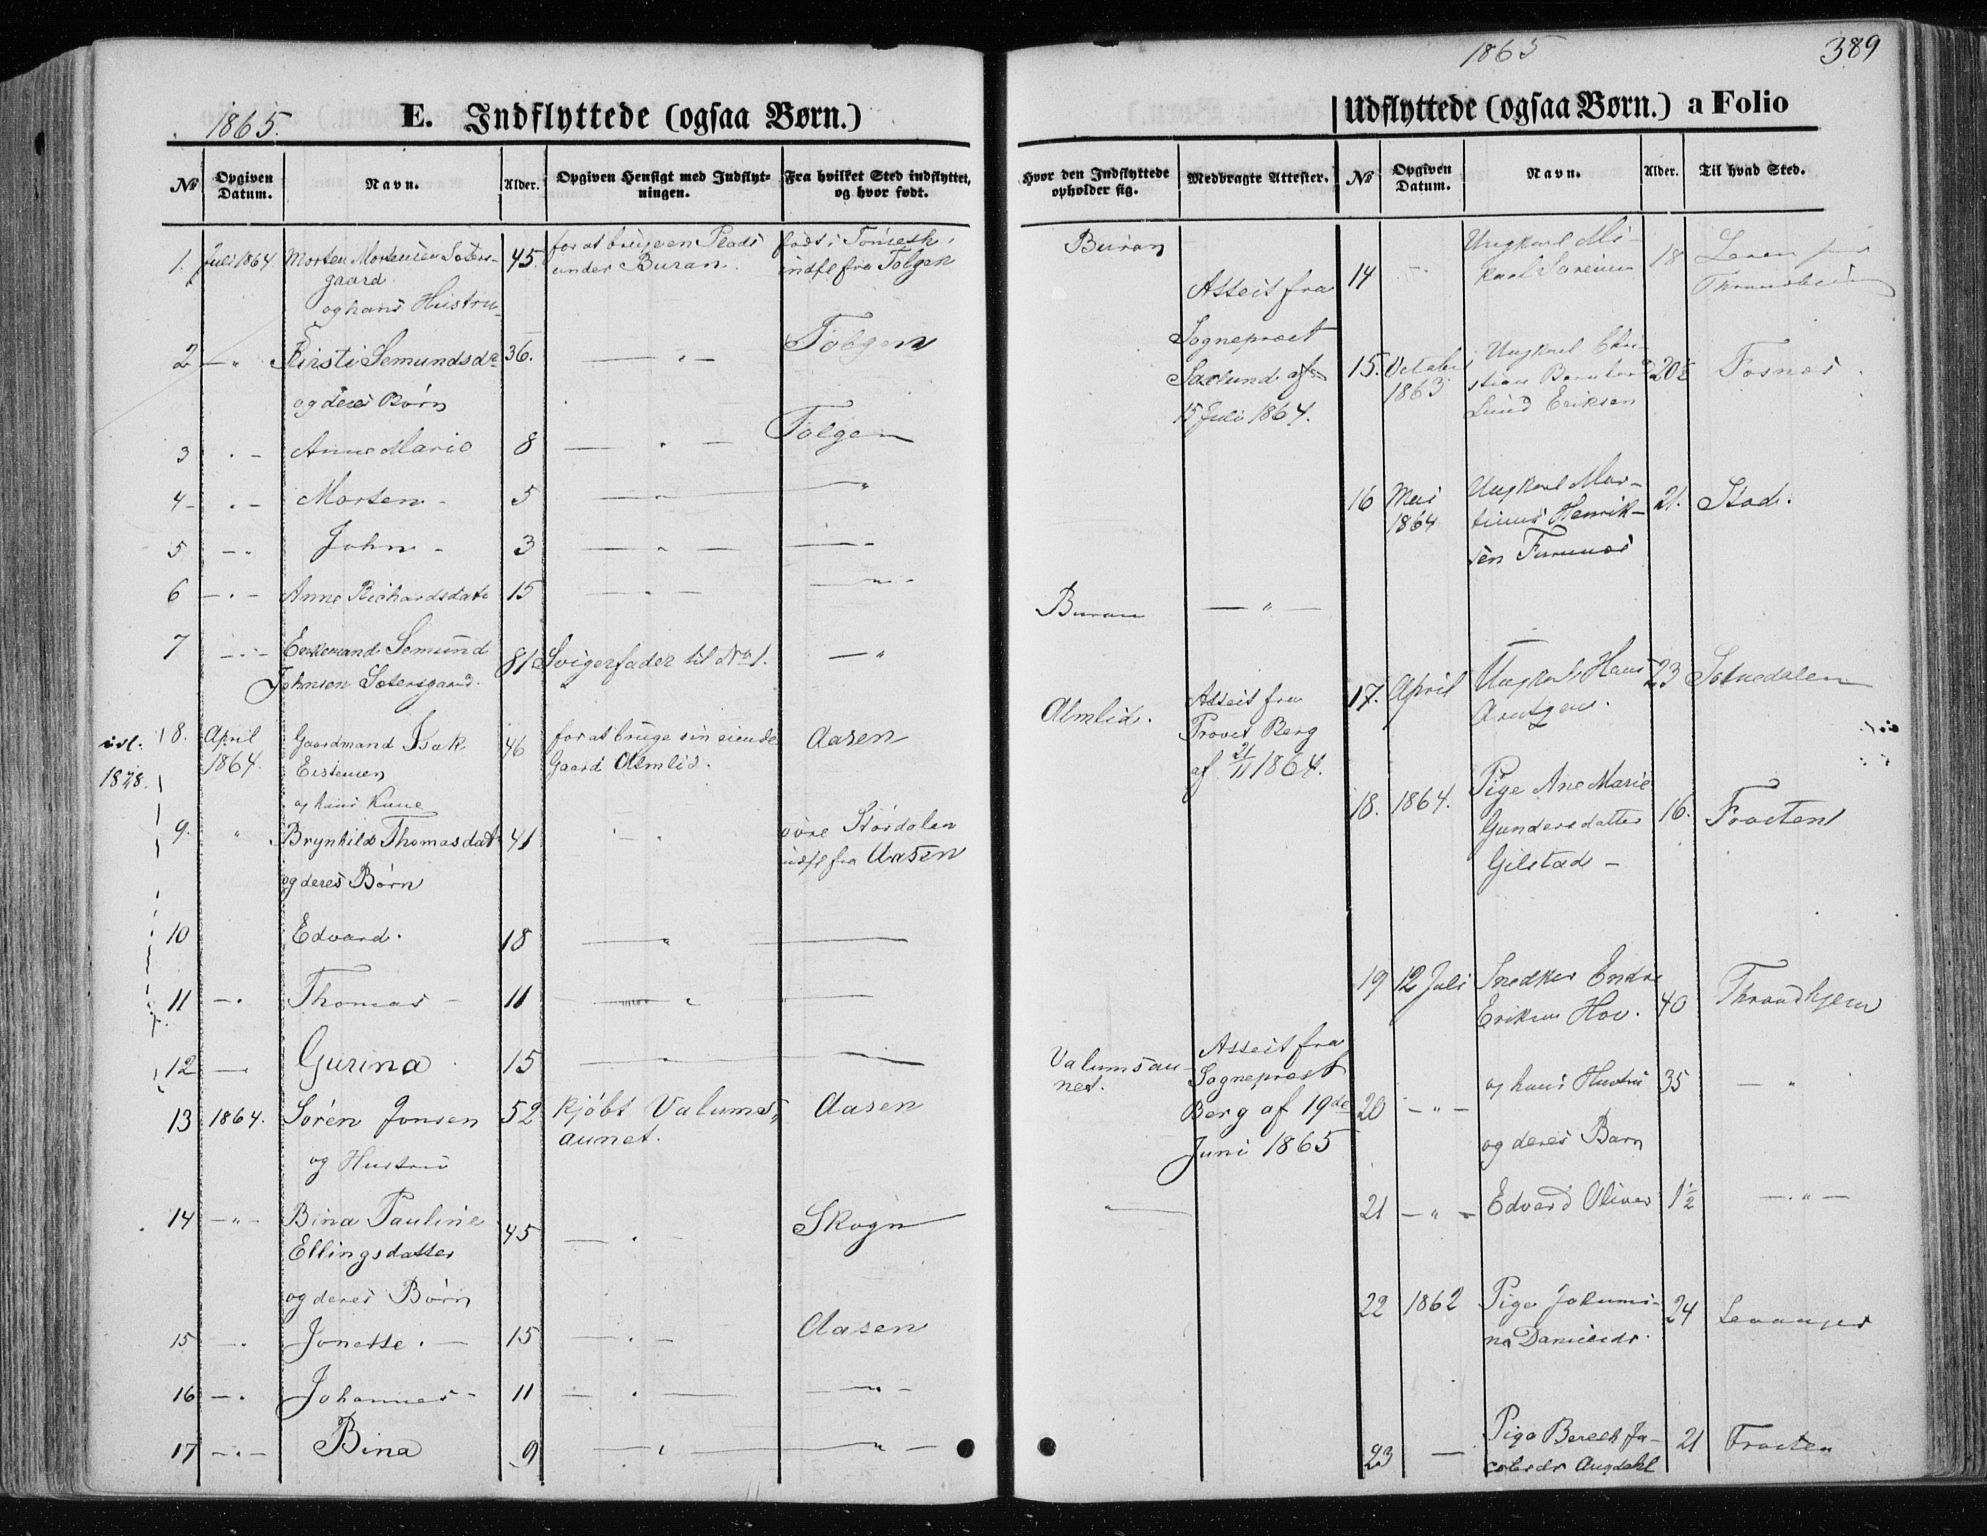 1865
389
1865. E. Indflyttede (ogsaa Børn.)
Udflyttede (ogsaa Børn.) a Folio
№ Opgiven Datum. Navn. Alder. Opgiven Hensigt med Indflytningen. Fra hvilket Sted indflyttet, og hvor født.
Hvor den Indflyttede opholder sig. Medbragte Attester. № Opgiven Datum. Navn. Alder. Til hvad Sted.
1. Juli 1864 Morten Mortensen Soters- 45. for at bruge en Plads født i Tønseth,
gaard under Buran. indfl fra Tolgen
og hans Hustru
2 — " Kirsti Semundsdr 36. — " — Tolgen
og deres Børn
3 " — Anne Marie 8 — " — Tolgen
4 - " - Morten - 5 — " — "
5 - " John - 3 — " — — "
6 — " — Anne Richardsdatr 15 — " — — " -
7 — " — Enkemand Semund 81. Svigerfader til No 1. — "
Johnsen Sotersgaard.
8. April Gaardmand Isak 46 for at bruge sin eiende Aasen
1864. Eistensen Gaard Almlid.
og hans Kone
9. " Brynhild Thomasdat 41 " øvre Størdalen
indfl fra Aasen
og deres Børn
10 Edvard. 18 — " —
11 — " Thomas - 11 — " —
12 — Gurina 15 — " —
13 1864. Søren Jonsen 52 kjøbt Valums, Aasen
og Hustru aunet.
14 — " — Bina Pauline 45 — " — Skogn
Ellingsdatter
og deres Børn
15 — " Jonette. — 15 — " — Aasen
16 — " Johannes - 11 — " — — " —
17 — " — Bina 9 — " — — " —
1878.
Buran
Attest fra
Sognepræst
af
15 Juli 1864.
Buran — " —
Almlid. Attest fra
Provst Berg
af 21/11 1864.
Valumsau- Attest fra
net. Sognepræst
Berg af 19de
Juni 1865
14 — Ungkarl Mi- 18
kael Sørensen Throndhjem
15. October Ungkarl Chri- 20½ Fosnæs.
1863 stian Bernhard
Lund Eriksen
16 Mai Ungkarl Mar- 21. Stod.
1864 tinus Henrik-
sen Furunæs
17. April Ungkarl Hans 23 Soknedalen
Arntzen.
18. 1864. Pige Ane Marie 16. Frosten
Gundersdatter
Gilstad —
19 12 Juli Snedker Endre 40 Throndhjem
Eriksen Hov.
20 — " — og hans Hustru 35 — "
og deres Barn
21 — " — Edvard Oliver 1½ — " —
22 1862 Pige Jokumi- 24 Levanger
na Danielsdr.
23 — Pige Bereth Ja- 21 Frosten
cobsdr Augdahl